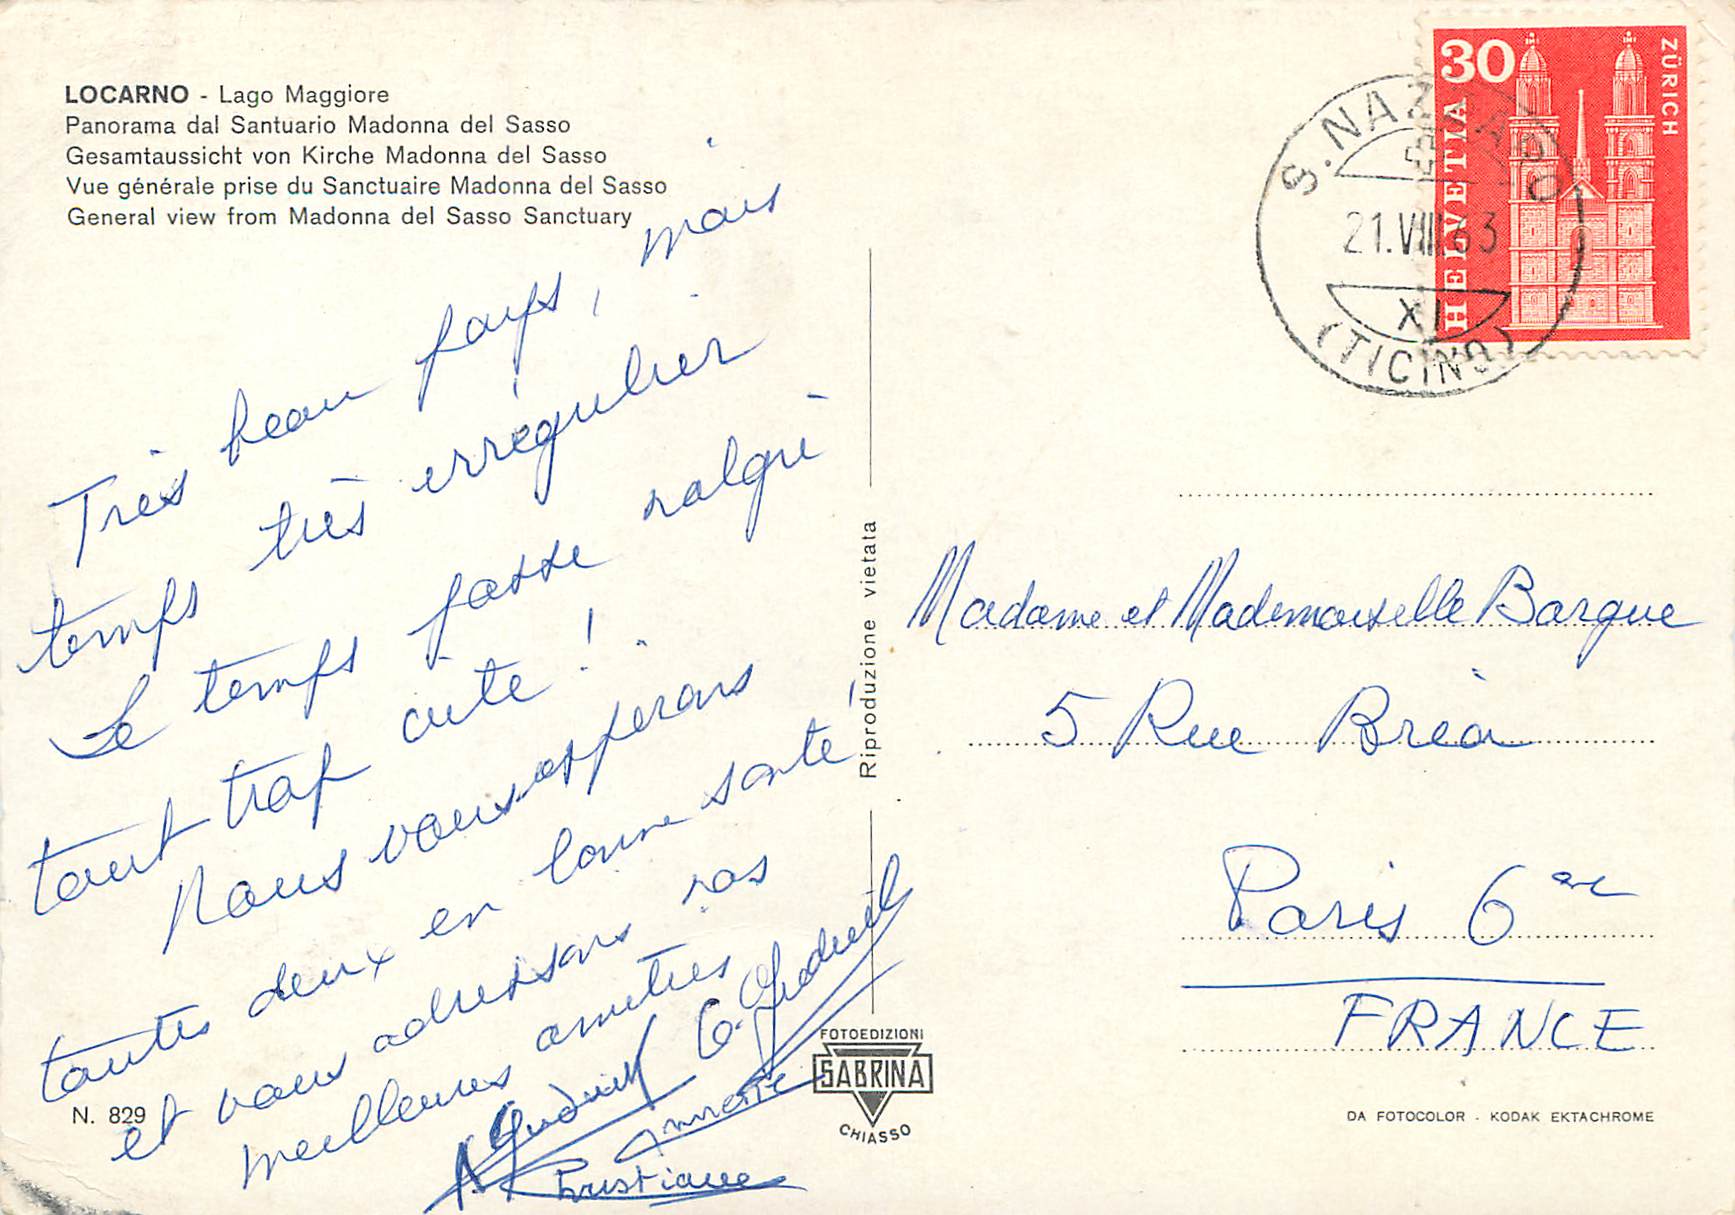 LOCARNO - Lago Maggiore
Panorama dal Santuario Madonna del Sasso
Gesamtaussicht von Kirche Madonna del Sasso
Vue générale prise du Sanctuaire Madonna del Sasso
General view from Madonna del Sasso Sanctuary
Très beau pays, mais
temps très irrégulier
Le temps passe malgré
tout trop vite !
Nous vous espérons
toutes deux en bonne santé,
et vous adressons nos
meilleures amitiés
Annette
Christiane
N. 829
Riproduzione vietata
FOTOEDIZIONI
SABRINA
CHIASSO
30
HELVETIA
ZÜRICH
S. NAZZARO
21.VIII.63
XI
(TICINO)
Madame et Mademoiselle Barque
5 Rue Bréa
Paris 6
FRANCE
DA FOTOCOLOR - KODAK EKTACHROME